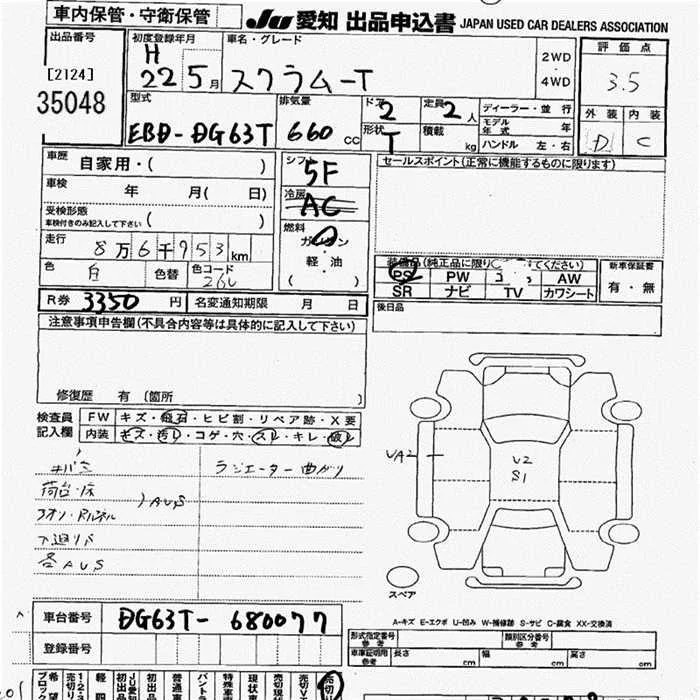 車内保管・守衛保管
JU 愛知 出品申込書 JAPAN USED CAR DEALERS ASSOCIATION
出品番号
[2124]
35048
初度登録年月
H 22 5月
車名・グレード
スクラムーT
2WD
・
4WD
評価点
3.5
外装 内装
D C
型式
EBD-DG63T
排気量
660 cc
ドア 2
形状 T
定員 2人
積載 kg
ディーラー・並行
モデル年式 年
ハンドル 左・右
車歴 自家用・( )
車検 年 月( 日)
受検形態
車検付きのみ記入して下さい ( )
走行 8万6千953km
色 白 色替 色コード 26U
シフト 5F
冷房 AC
燃料
ガソリン
・
軽・油
( )
セールスポイント(正常に機能するものに限ります)
装備品(純正品に限り てください)
PS PW AW
SR ナビ TV カワシート
新車保証書
有・無
後日品
R券 3350円 名変通知期限 月 日
注意事項申告欄(不具合内容等は具体的に記入して下さい)
修復歴 有〔箇所
検査員記入欄
FW キズ・飛石・ヒビ割・リペア跡・X要
内装 キズ・汚れ・コゲ・穴・スレ・キレ・破れ
キバミ
ラジエーター曲がり
荷台・床
AUS
下廻りサビ
各AUS
UA2
U2
S1
スペア
A-キズ E-エクボ U-凹み W-補修跡 S-サビ C-腐食 XX-交換済
車台番号 DG63T-680077
登録番号
形式指定番号 参考
類別区分番号 参考
車庫証明用 参考 長さ cm 幅 cm 高さ cm